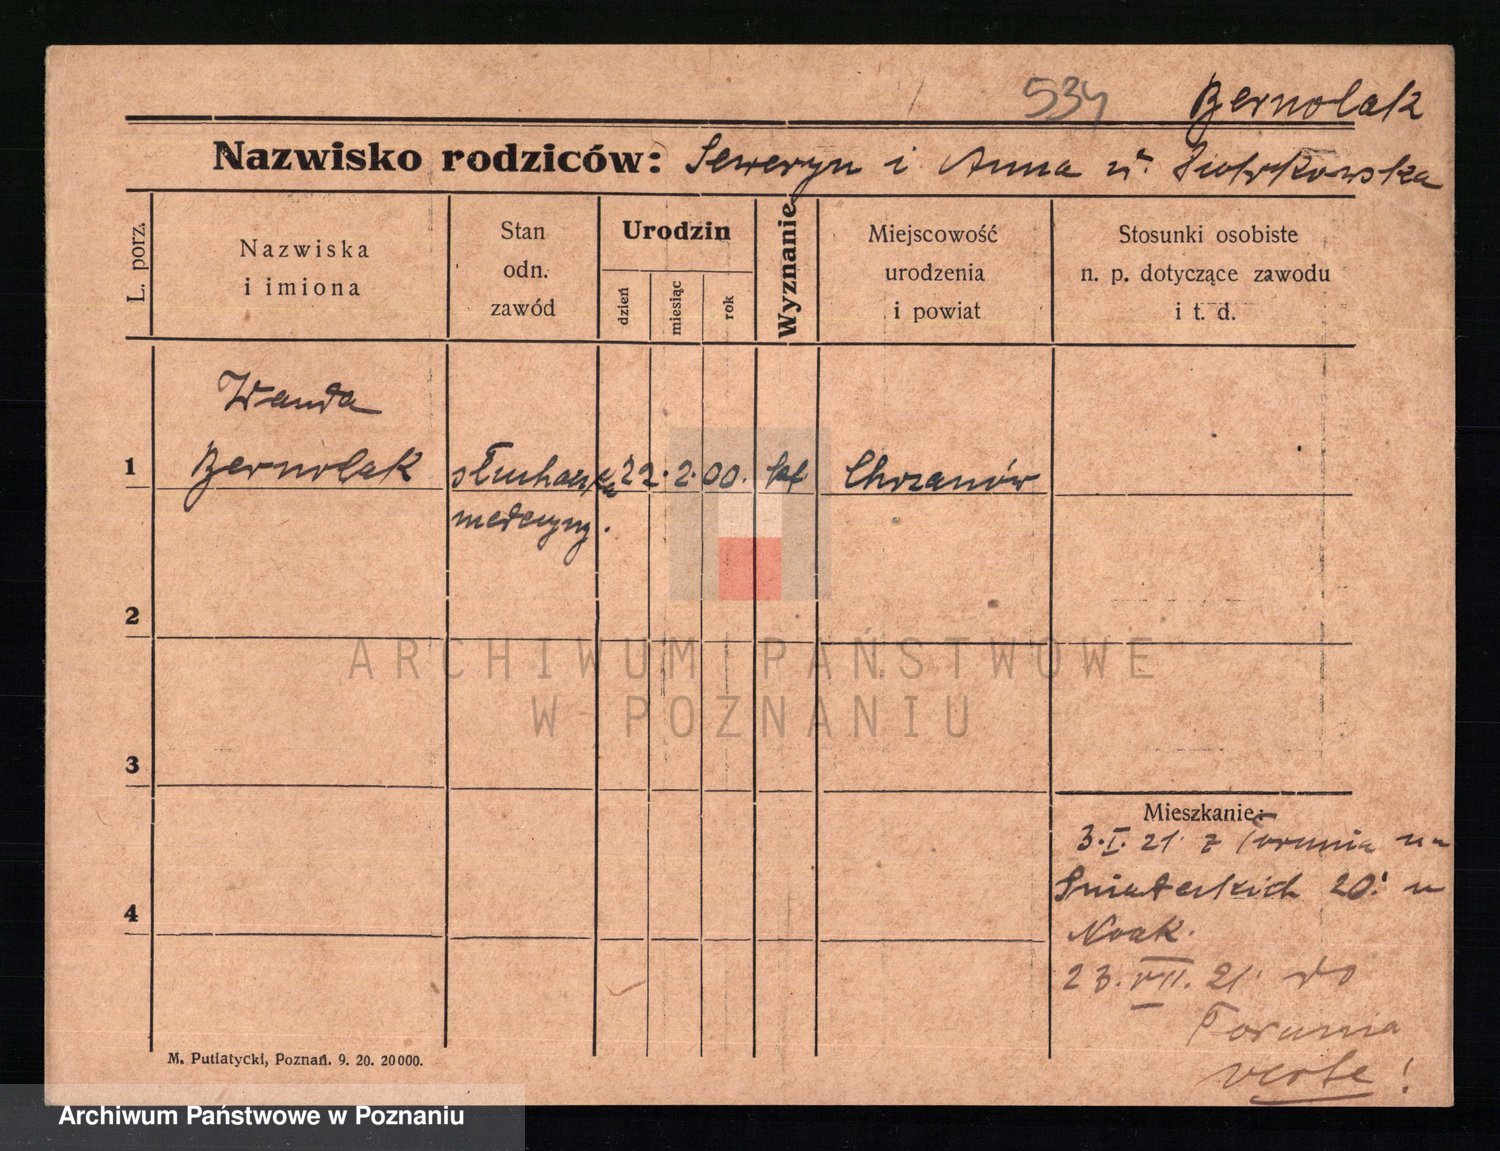 534 Bernolak
Nazwisko rodziców: Seweryn i Anna
L. porz.
Nazwiska
i imiona
Stan
odn.
zawód
Urodzin
dzień
miesiąc
rok
Wyznanie
Miejscowość
urodzenia
i powiat
Stosunki osobiste
n. p. dotyczące zawodu
i t. d.
Wanda
1 Bernolak słuchaczka 22. 2. 00. kat Chrzanów
medycyny.
2
3
4
Mieszkanie:
3. I. 21. z Torunia na
Śniadeckich 20. u
Noak.
23. VII. 21. do
Torunia
verte!
M. Putiatycki, Poznań. 9. 20. 20000.
ARCHIWUM PAŃSTWOWE
W POZNANIU
Archiwum Państwowe w Poznaniu